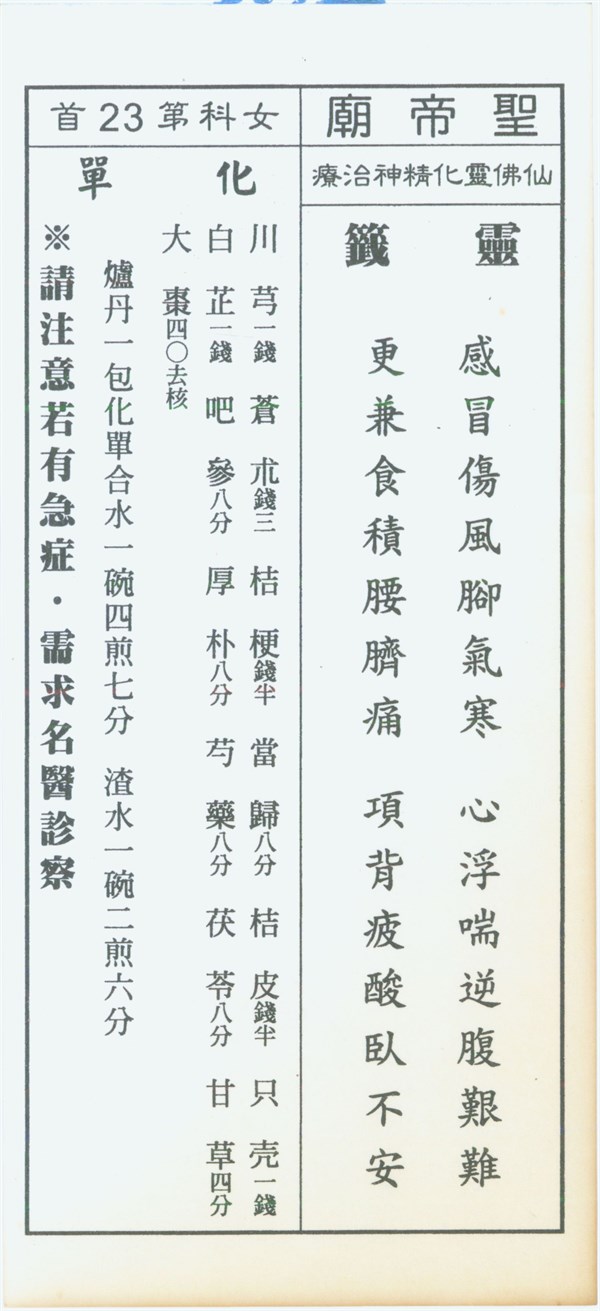 聖帝廟
仙佛靈化精神治療
靈籤
感冒傷風腳氣寒 心浮喘逆腹艱難
更兼食積腰臍痛 項背疲酸臥不安
女科第23首
化單
川芎一錢 蒼朮錢三 桔梗錢半 當歸八分 桔皮錢半 只壳一錢
白芷一錢 吧參八分 厚朴八分 芍藥八分 茯苓八分 甘草四分
大棗四〇去核
爐丹一包化單合水一碗四煎七分 渣水一碗二煎六分
※請注意若有急症．需求名醫診察